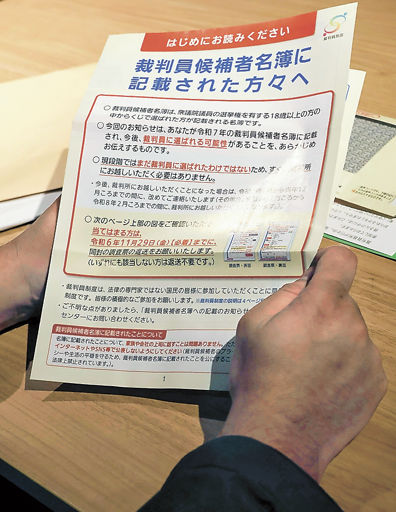 はじめにお読みください
裁判員制度
裁判員候補者名簿に
記載された方々へ
○ 裁判員候補者名簿は、衆議院議員の選挙権を有する18歳以上の方の
中からくじで選ばれた方が記載される名簿です。
○ 今回のお知らせは、あなたが令和7年の裁判員候補者名簿に記載
され、今後、裁判員に選ばれる可能性があることを、あらかじめ
お伝えするものです。
○ 現段階ではまだ裁判員に選ばれたわけではないため、すぐ
にお越しいただく必要はありません。
・今後、裁判所にお越しいただくことになった場合は、令
月ころまでの間に、改めてご連絡いたします
令和8年2月ころまでの間に、裁判所にお越し
○ 次のページ上部の図をご確認いただき、
当てはまる方は、
令和6年11月29日(金)【必着】までに、
同封の調査票の返送をお願いいたします。
(いずれにも該当しない方は返送不要です。)
調査票・表面
調査票・裏面
・裁判員制度は、法律の専門家ではない国民の皆様に参加していただくことに
制度です。皆様の積極的なご参加をお願いします。※裁判員制度の説明は4ページ
・ご不明な点がありましたら、「裁判員候補者名簿への記載のお知らせ
センターにお問い合わせください。
裁判員候補者名簿に記載されたことについて
名簿に記載されたことについて、家族や会社の上司に話すことは問題ありません。
インターネットやSNS等で公表しないようにしてください(裁判員候補者のプラ
シーや生活の平穏を守るため、裁判員候補者名簿に記載されたことを公にする
法律上禁止されています)。
1